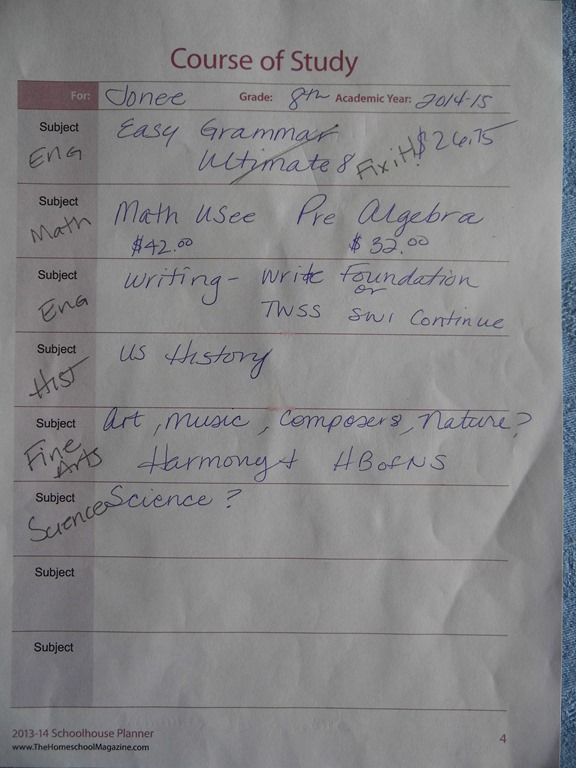 Course of Study
For: Jonee Grade: 8th Academic Year: 2014-15
Subject Easy Grammar
Eng Ultimate 8 Fix it! $26.75
Subject
Math Math Usee Pre Algebra
$42.00 $32.00
Subject Writing - Write Foundation
or
Eng TWSS SWI Continue
Subject US History
Hist
Subject Art, Music, Composers, Nature?
Fine Arts Harmony + HBofNS
Subject Science?
Science
Subject
Subject
2013-14 Schoolhouse Planner
www.TheHomeschoolMagazine.com
4